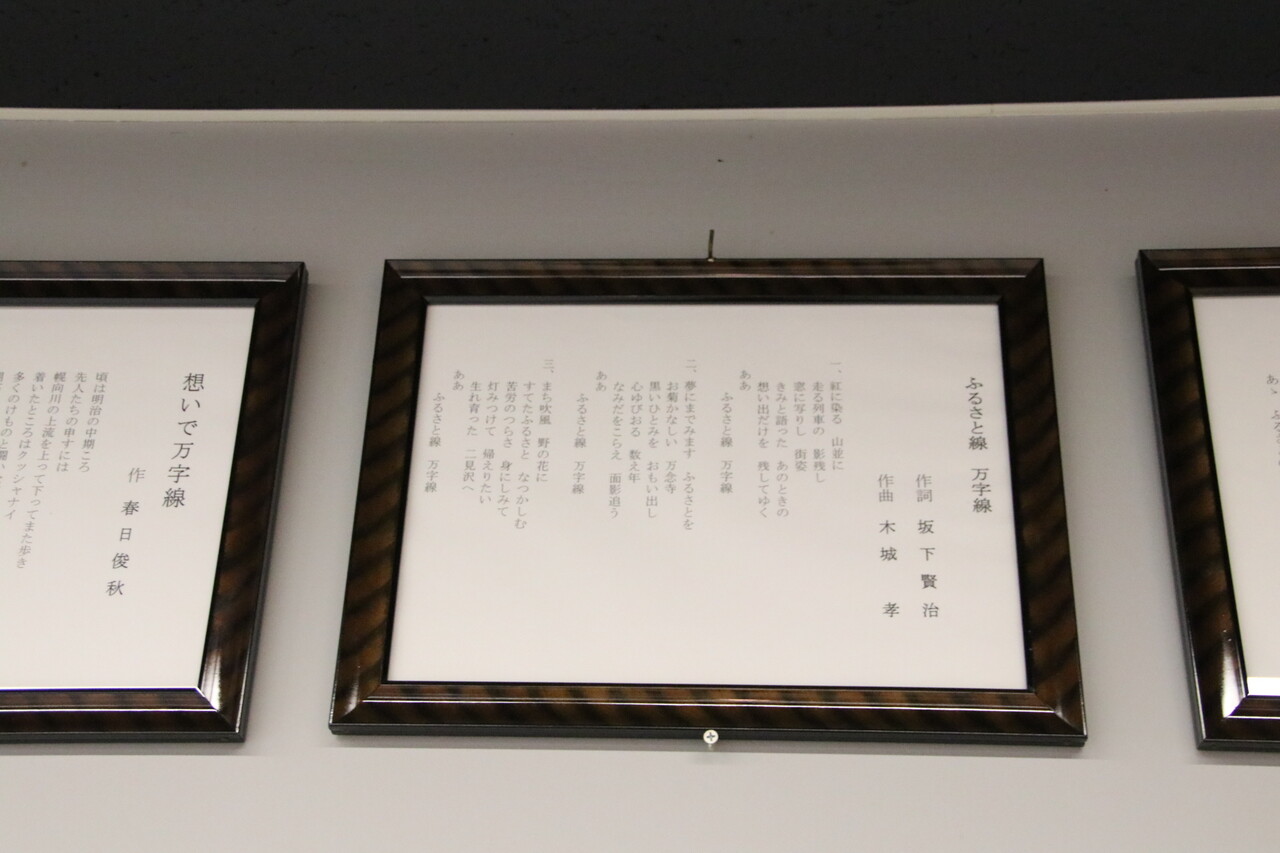 ふるさと線　万字線
作詞　坂下賢治
作曲　木城　孝
一、紅に染る　山並に
走る列車の　影残し
窓に写りし　街姿
きみと語った　あのときの
想い出だけを　残してゆく
ああ
ふるさと線　万字線
二、夢にまでみます　ふるさとを
お菊かなしい　万念寺
黒いひとみを　おもい出し
心ゆびおる　数え年
なみだをこらえ　面影追う
ああ
ふるさと線　万字線
三、まち吹風　野の花に
すてたふるさと　なつかしむ
苦労のつらさ　身にしみて
灯みつけて　帰えりたい
生れ育った　二見沢へ
ああ
ふるさと線　万字線
想いで万字線
作　春日俊秋
頃は明治の中期ころ
先人たちの申すには
幌向川の上流を上って下ってまた歩き
着いたところはクッシャナイ
多くのけものと闘い